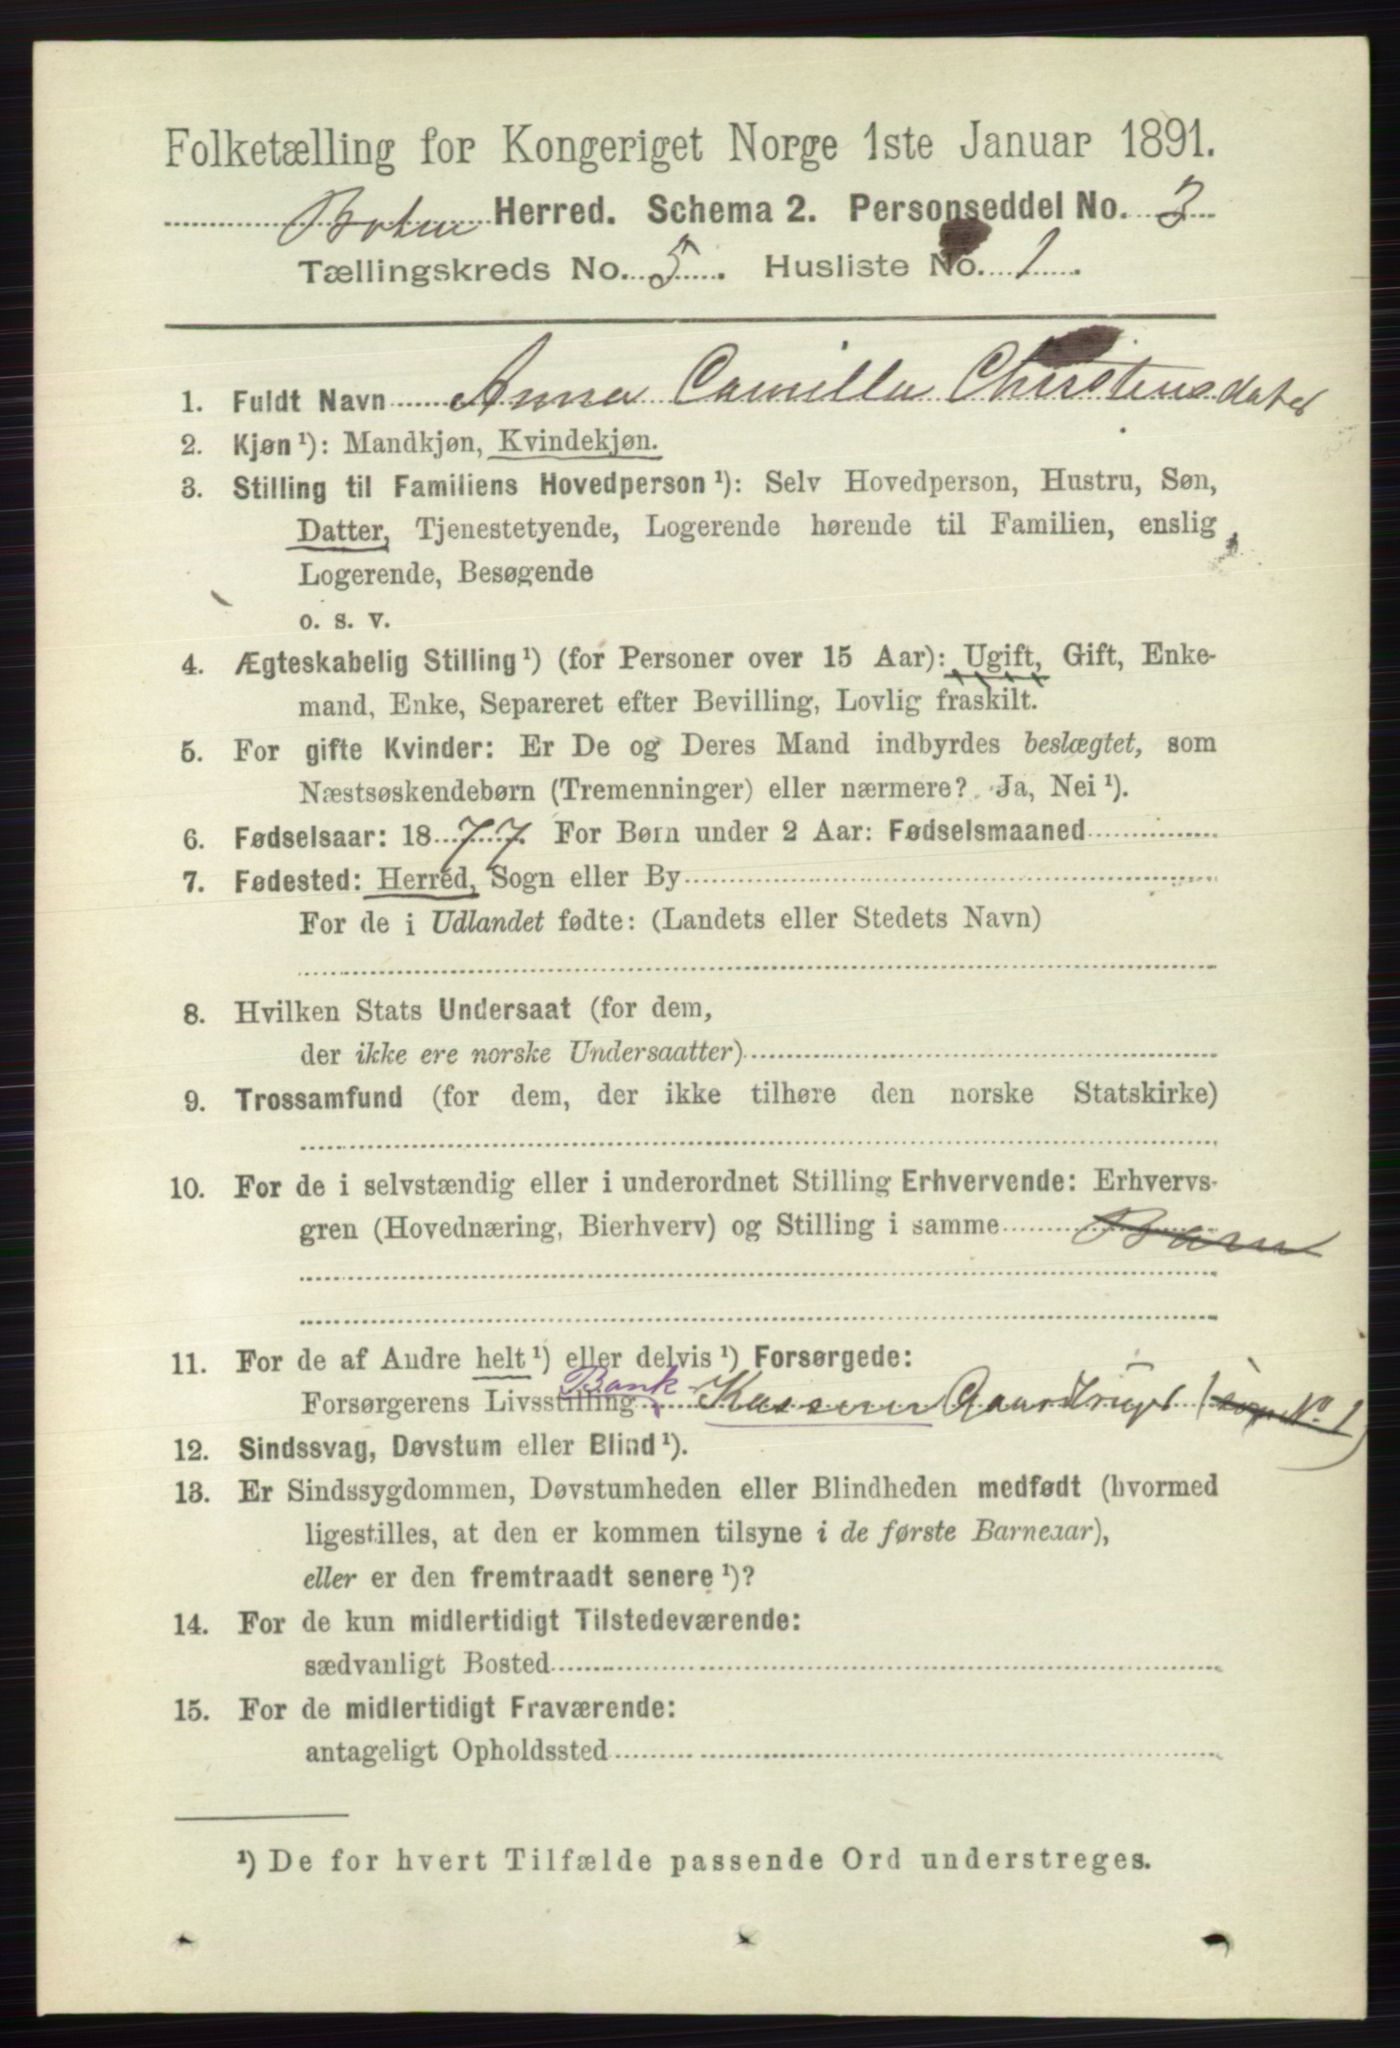 Folketælling for Kongeriget Norge 1ste Januar 1891.
Botne Herred. Schema 2. Personseddel No. 3
Tællingskreds No. 5. Husliste No. 1.
1. Fuldt Navn Anna Camilla Christensdater
2. Kjøn¹): Mandkjøn, Kvindekjøn.
3. Stilling til Familiens Hovedperson¹): Selv Hovedperson, Hustru, Søn,
Datter, Tjenestetyende, Logerende hørende til Familien, enslig
Logerende, Besøgende
o. s. v.
4. Ægteskabelig Stilling¹) (for Personer over 15 Aar): Ugift, Gift, Enke-
mand, Enke, Separeret efter Bevilling, Lovlig fraskilt.
5. For gifte Kvinder: Er De og Deres Mand indbyrdes beslægtet, som
Næstsøskendebørn (Tremenninger) eller nærmere? Ja, Nei¹).
6. Fødselsaar: 1877. For Børn under 2 Aar: Fødselsmaaned
7. Fødested: Herred, Sogn eller By
For de i Udlandet fødte: (Landets eller Stedets Navn)
8. Hvilken Stats Undersaat (for dem,
der ikke ere norske Undersaatter)
9. Trossamfund (for dem, der ikke tilhøre den norske Statskirke)
10. For de i selvstændig eller i underordnet Stilling Erhvervende: Erhvervs-
gren (Hovednæring, Bierhverv) og Stilling i samme Barn
11. For de af Andre helt¹) eller delvis¹) Forsørgede:
Forsørgerens Livsstilling Bank Kasserer Gaardbruger No 1)
12. Sindssvag, Døvstum eller Blind¹).
13. Er Sindssygdommen, Døvstumheden eller Blindheden medfødt (hvormed
ligestilles, at den er kommen tilsyne i de første Barneaar),
eller er den fremtraadt senere¹)?
14. For de kun midlertidigt Tilstedeværende:
sædvanligt Bosted
15. For de midlertidigt Fraværende:
antageligt Opholdssted
¹) De for hvert Tilfælde passende Ord understreges.